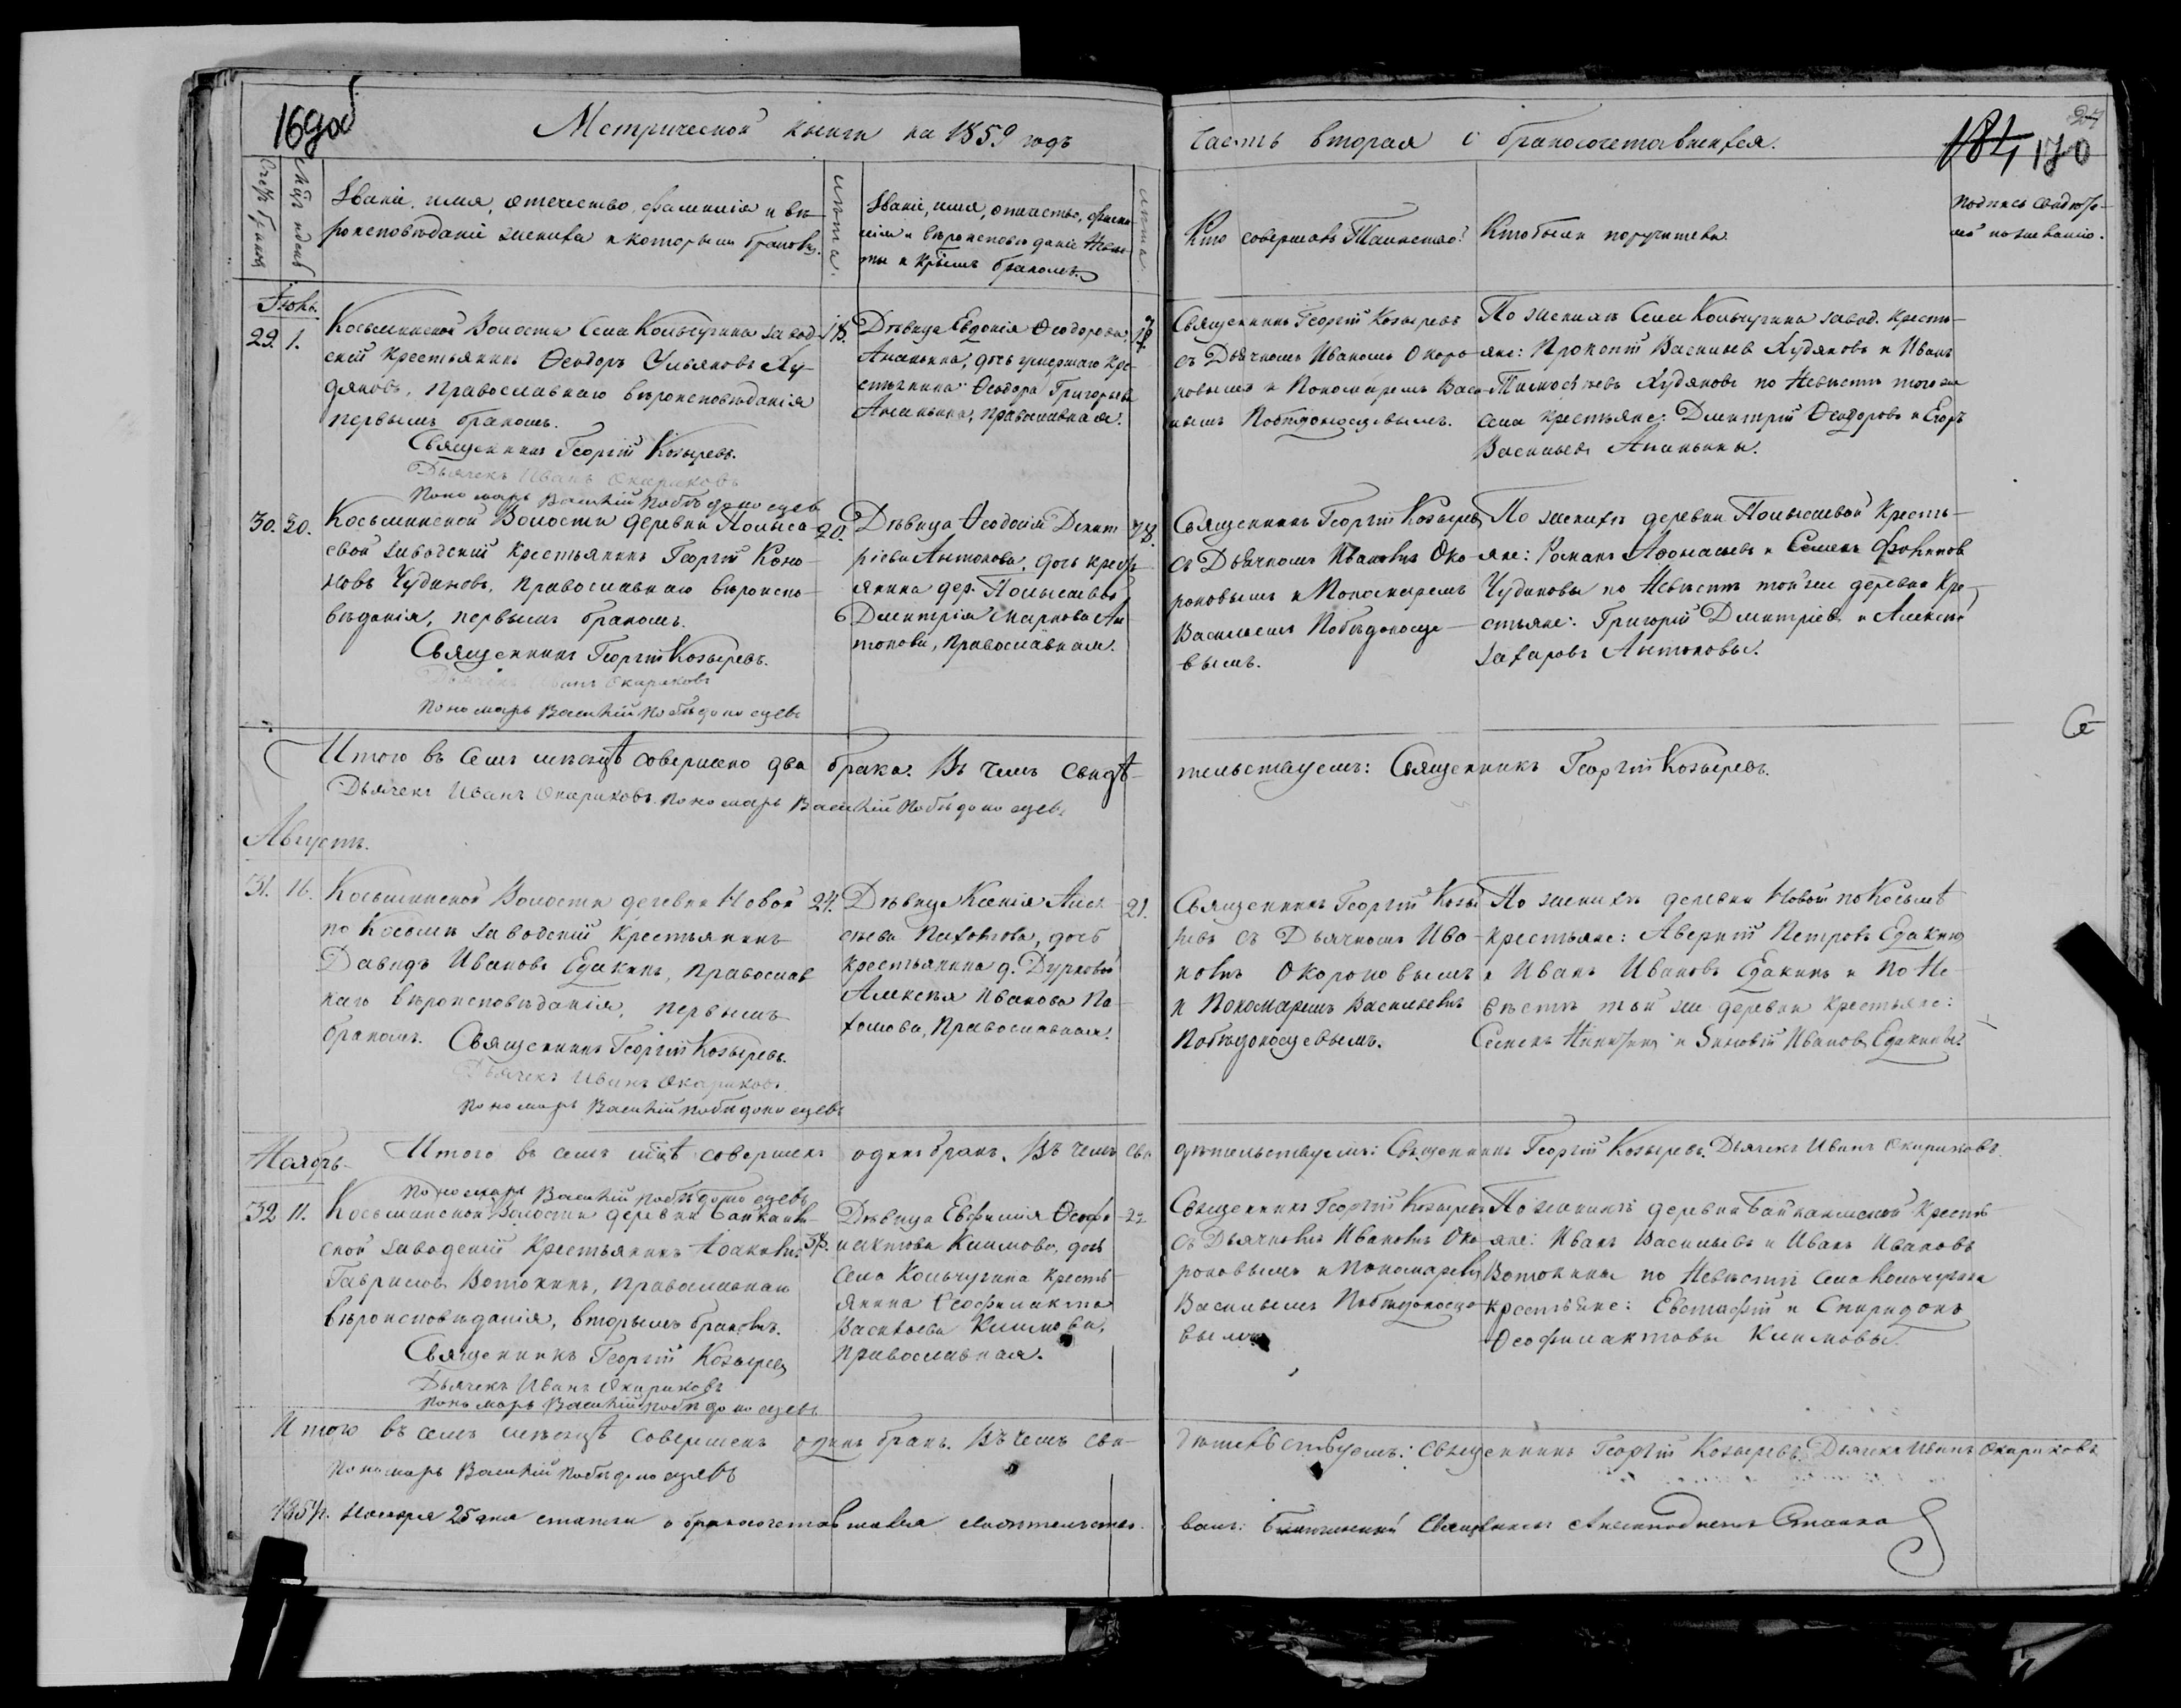 169 об
Метрической книги на 1859 годъ
часть вторая о бракосочетавшихся.
184 170
27
Счетъ браковъ
Мѣс. и день
Званіе, имя, отечество, фамилія и вѣ-
роисповѣданіе жениха и которымъ бракомъ.
лѣта.
Званіе, имя, отчество, фами-
лія и вѣроисповѣданіе Невѣс-
ты и крымъ бракомъ.
лѣта.
Кто совершалъ Таинство?
Кто были поручители
подпись свидѣте-
лей по желанію.
Іюнь.
29. 1.
Косьминской Волости Села Кольчугина завод-
скій Крестьянинъ Ѳеодоръ Ульяновъ Ху-
дяковъ, Православнаго вѣроисповѣданія
первымъ бракомъ.
Священникъ Георгій Козыревъ.
Дьячекъ Иванъ Окороковъ
Пономарь Василій Побѣдоносцевъ
18.
Дѣвица Евдокія Ѳеодорова
Ананьина, дочь умершаго Кре-
стьянина Ѳеодора Григорьева
Ананьина, православная.
Священникъ Георгій Козыревъ
съ Дьячкомъ Иваномъ Окоро-
ковымъ и Пономаремъ Васи-
льемъ Побѣдоносцевымъ.
По женихѣ Села Кольчугина завод. Кресть-
яне: Прокопій Васильевъ Худяковъ и Иванъ
Тимофѣевъ Худяковъ по Невѣстѣ того же
села крестьяне: Дмитрій Ѳеодоровъ и Егоръ
Васильевъ Ананьины.
30. 20.
Косьминской Волости деревни Полыса-
евой заводскій Крестьянинъ Георгій Коно-
новъ Чудиновъ, Православнаго вѣроиспо-
вѣданія, первымъ бракомъ.
Священникъ Георгій Козыревъ.
Дьячекъ Иванъ Окороковъ
Пономарь Василій Побѣдоносцевъ
20.
Дѣвица Ѳеодосія Дмит-
ріева Антонова, дочь крест-
янина дер. Полысаевой
Дмитрія Маркова Ан-
тонова, православная.
18.
Священникъ Георгій Козыревъ
съ Дьячкомъ Иваномъ Око-
роковымъ и Пономаремъ
Васильемъ Побѣдоносце-
вымъ.
По женихѣ деревни Полысаевой Кресть-
яне: Романъ Аѳонасьевъ и Семенъ Фокинов
Чудиновы по Невѣстѣ той же деревни Кре-
стьяне: Григорій Дмитріевъ и Алексѣй
Захаровъ Антоновы.
Итого въ семъ мѣсяцѣ совершено два брака. Въ чемъ свидѣ-
тельствуемъ: Священникъ Георгій Козыревъ.
Дьячекъ Иванъ Окороковъ. Пономарь Василій Побѣдоносцевъ
Августъ.
31. 16.
Косьминской Волости деревни Новой
по Косьмѣ заводскій Крестьянинъ
Давидъ Ивановъ Едакинъ, православ
наго вѣроисповѣданія, первымъ
бракомъ. Священникъ Георгій Козыревъ.
Дьячекъ Иванъ Окороковъ.
Пономарь Василій Побѣдоносцевъ
24.
Дѣвица Ксенія Алек-
сѣева Пахомова, дочь
крестьянина д. Дурновой
Алексѣя Иванова Па-
хомова, Православная.
21.
Священникъ Георгій Козы
ревъ съ Дьячкомъ Ива-
номъ Окороковымъ
и Пономаремъ Васильемъ
Побѣдоносцевымъ.
По женихѣ деревни Новой по Косьмѣ
крестьяне: Аверкій Петровъ Едакинъ
и Иванъ Ивановъ Едакинъ и по Не-
вѣстѣ той же деревни крестьяне:
Семенъ Никитинъ и Зиновій Ивановъ Едакины.
Ноябрь.
Итого въ семъ мѣсяцѣ совершенъ одинъ бракъ. Въ чемъ сви
дѣтельствуемъ: Священникъ Георгій Козыревъ. Дьячекъ Иванъ Окороковъ.
Пономарь Василій Побѣдоносцевъ
32 11.
Косьминской Волости деревни Байкаим-
ской заводскій Крестьянинъ Іоакимъ
Гавриловъ Вотокинъ, православнаго
вѣроисповѣданія, вторымъ бракомъ.
Священникъ Георгій Козыревъ
Дьячекъ Иванъ Окороковъ
Пономарь Василій Побѣдоносцевъ
38.
Дѣвица Евфимія Ѳеофи-
лактова Климова, дочь
Села Кольчугина кресть-
янина Ѳеофилакта
Васильева Климова,
православная.
22
Священникъ Георгій Козыревъ
съ Дьячкомъ Иваномъ Око-
роковымъ и Пономаремъ
Васильемъ Побѣдоносце-
вымъ
По женихѣ деревни Байкаимской Кресть-
яне: Иванъ Васильевъ и Иванъ Ивановъ
Вотокины по Невѣстѣ села Кольчугина
крестьяне: Евстафій и Спиридонъ
Ѳеофилактовы Климовы.
Итого въ семъ мѣсяцѣ совершенъ одинъ бракъ. Въ чемъ сви-
дѣтельствуемъ: священникъ Георгій Козыревъ. Дьячекъ Иванъ Окороковъ
Пономарь Василій Побѣдоносцевъ
Ноября 25 дня статьи о бракосочетавшихся свидѣтельство-
валъ: Благочинный Священникъ